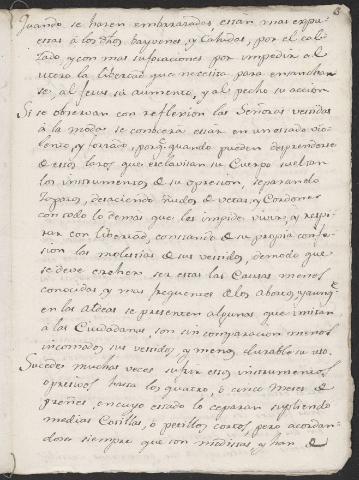 3
Quando se hacen embarazadas estan mas expu-
estas à los dhos bayvenes, y Cahidas, por el calid
zado, y con mas sufocaciones por impedir al
utero la libertad que necesita para ensanchar
se, al fetus su aumento, y al pecho su accion
Si se observan con reflexion las Señoras vestidas
à la moda se conocerá estar en un estado vio-
lento, y forzado, porqe quando pueden desprenderse
de estos lazos que esclavisan su Cuerpo sueltan
los instrumentos de su opresion, separando
Zapatos, desaciendo ñudos de vetas, y Cordones
con todo lo demas que les impide vivir, y respi-
rar con libertad, constando de su propia confe-
sion las molestias de sus vestidos, demodo que
se deve creher ser estas las Causas menos
conocidas, y mas frequentes de los abortos, y aunqe
en las Aldeas se presenten algunas que imitan
à las Ciudadanas, son sin comparacion menos
incomodos sus vestidos, y menos durable su uso.
Sucede muchas veces sufrir estos instrumentos
opresivos hasta los quatro, ò cinco meses de
preñes, en cuyo estado lo separan supliendo
medias Cotillas, ò petillos cortos, pero acordan-
dose siempre que son medissas, y han de